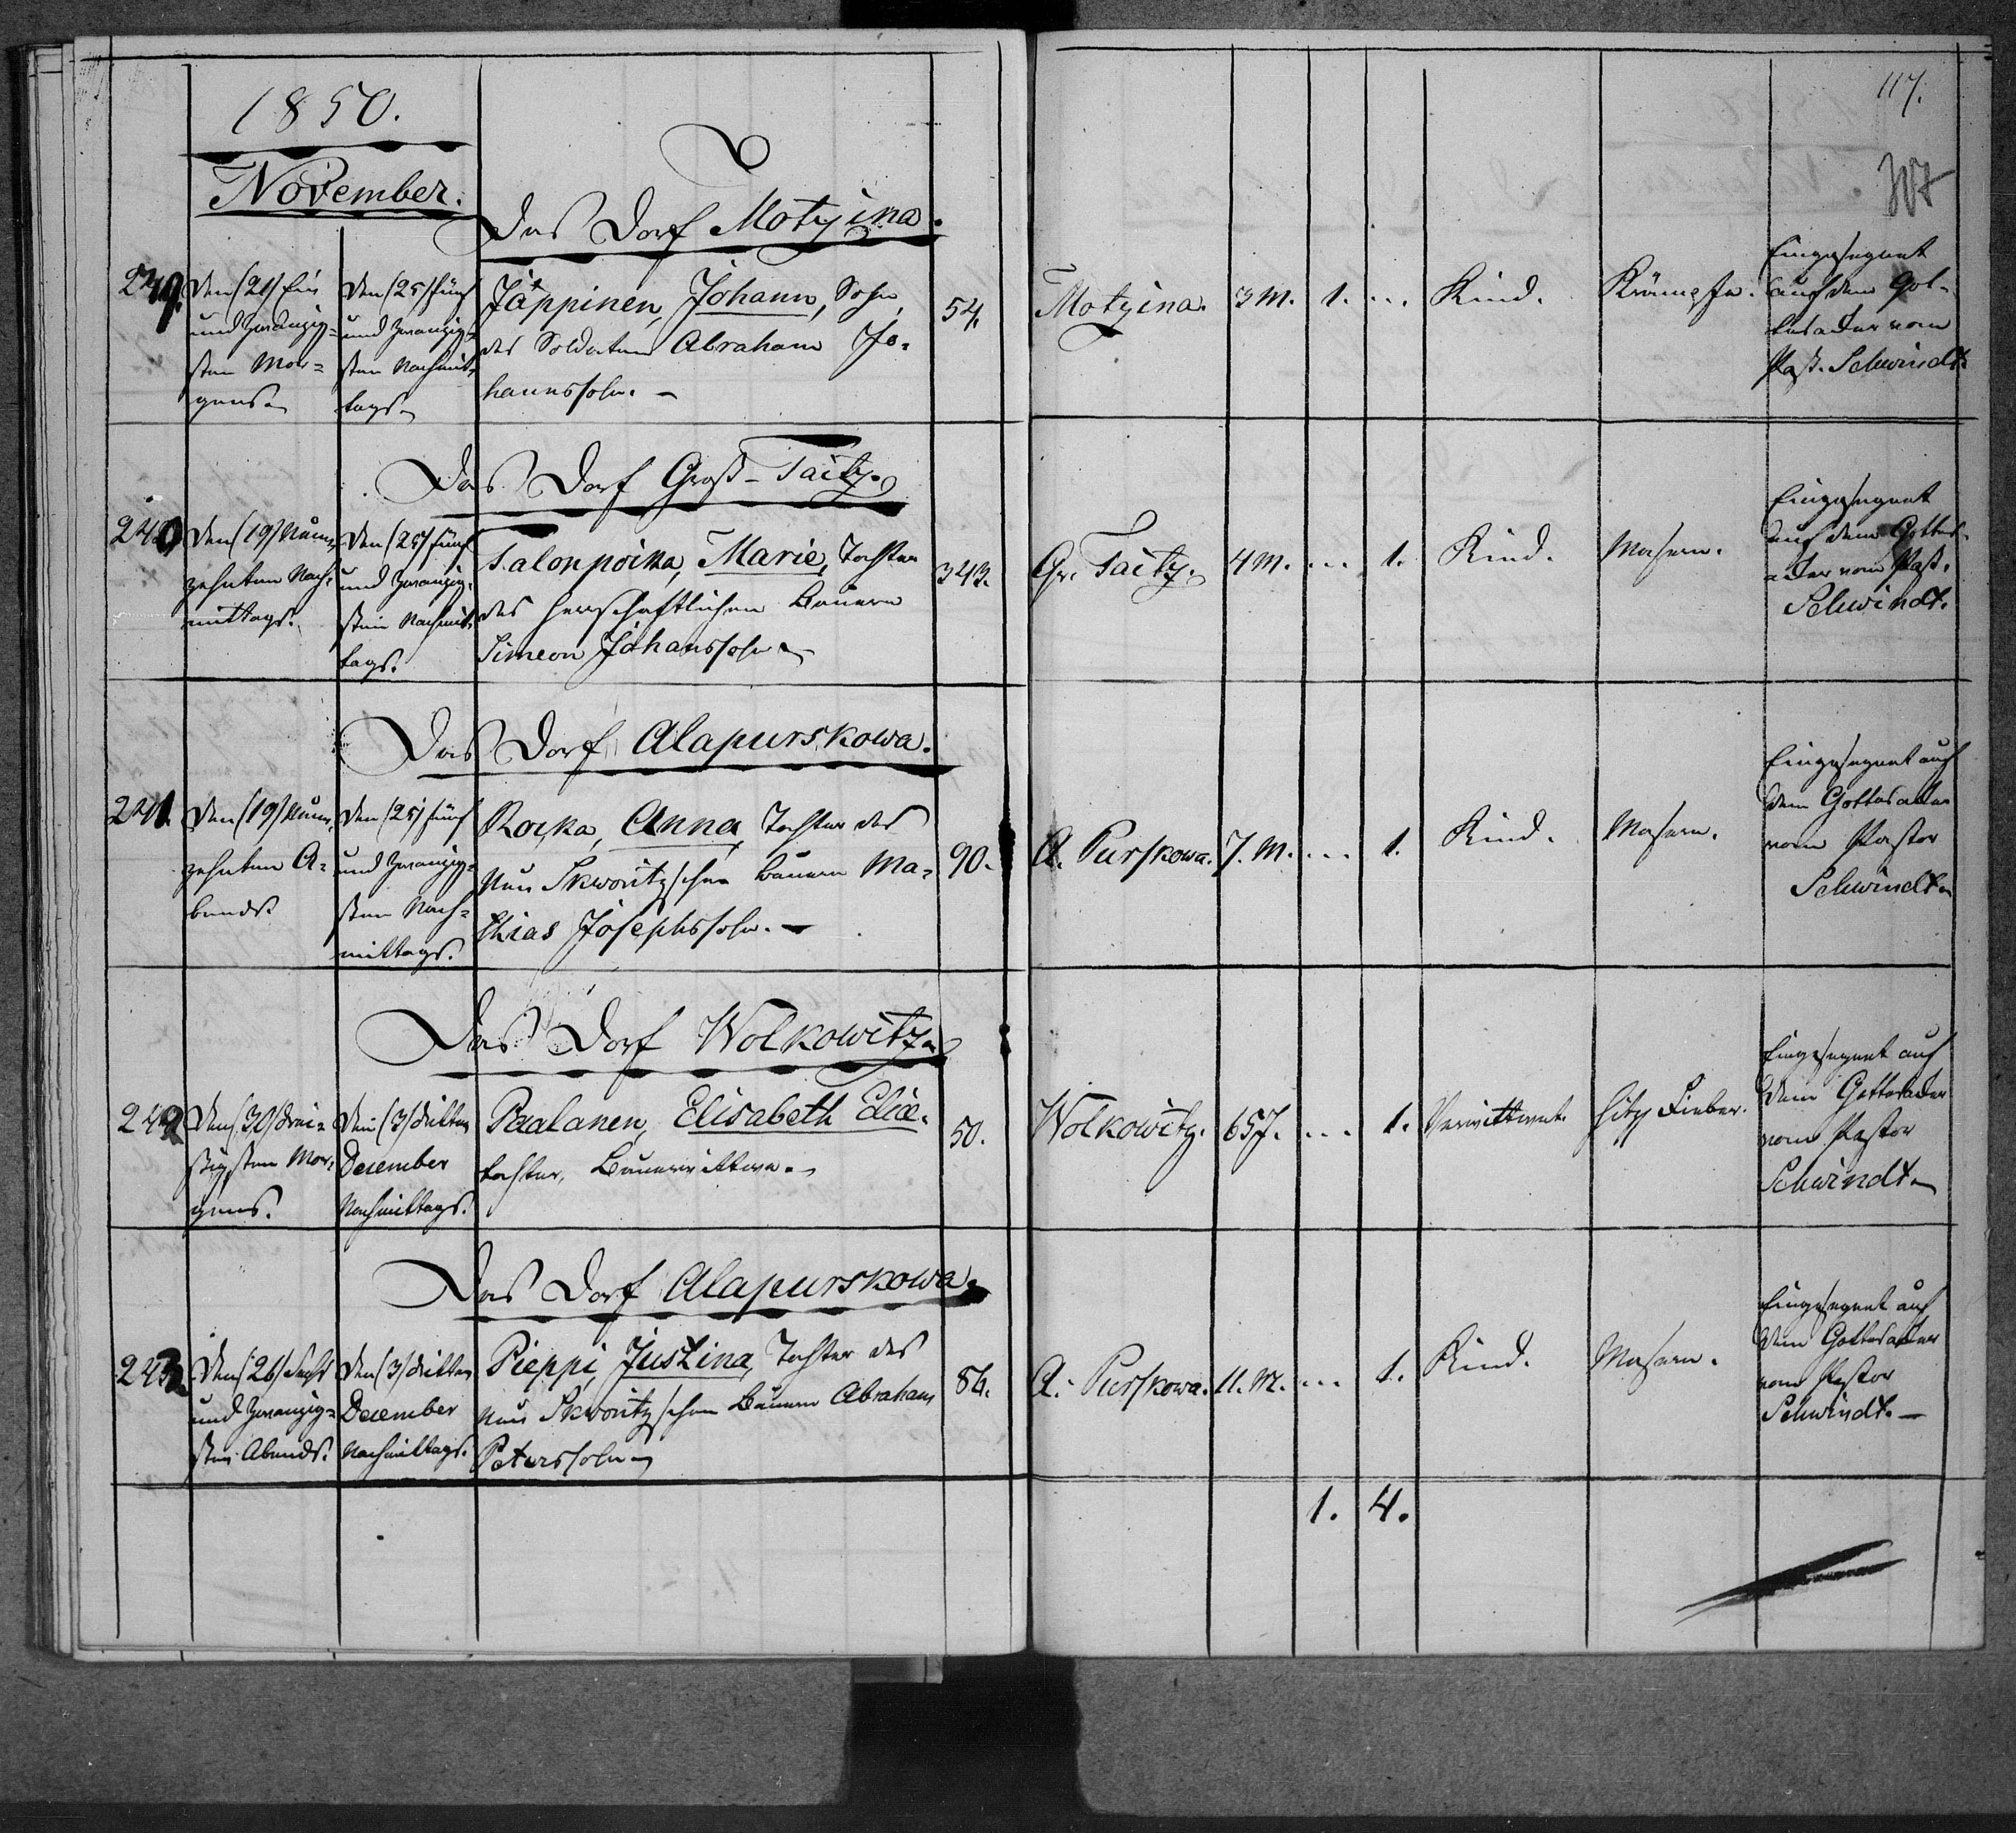 1850.
November.
117.
307
Das Dorf Motzina.
249.
Den (21) Ein
und zwanzig=
sten Mor=
gens.
Den (25) fünf
und zwanzig=
sten Nachmit=
tags.
Jäppinen, Johann, Sohn
des Soldaten Abraham Jo=
hannssohn. –
54.
Motzina.
3 M.
1.
...
Kind.
Krämpfe.
Eingesegnet
auf dem Got=
tesacker vom
Past. Schwindt.
Das Dorf Groß-Taitz.
240
Den (19) Neun=
zehnten Nach=
mittags.
Den (25) fünf
und zwanzig=
sten Nachmit=
tags.
Talonpoika, Marie, Tochter
des herrschaftlichen Bauern
Simeon Johanssohn
343.
Gr. Taitz.
4 M.
...
1.
Kind.
Masern.
Eingesegnet
auf dem Gottes=
acker vom Past.
Schwindt.
Das Dorf Alapurskowa.
241.
Den (19) Neun=
zehnten A=
bends.
Den (25) fünf
und zwanzig=
sten Nach=
mittags.
Rocka, Anna, Tochter des
Neu Skworitzschen Bauern Ma=
thias Josephssohn. –
90.
A. Purskowa.
7. M.
...
1.
Kind.
Masern.
Eingesegnet auf
dem Gottesacker
vom Pastor
Schwindt.
Das Dorf Wolkowitz.
242
Den (30) drei=
ßigsten Mor=
gens.
Den (3) dritten
December
Nachmittags.
Paalanen, Elisabeth Eliæ=
tochter, Bauerwittwe.
50.
Wolkowitz.
65 J.
...
1.
Verwittwet.
hitz. Fieber.
Eingesegnet auf
dem Gottesacker
vom Pastor
Schwindt.
Das Dorf Alapurskowa.
243.
Den (26) Sechs
und zwanzig=
sten Abends.
Den (3) dritten
December
Nachmittags.
Pieppi, Justina, Tochter des
Neu Skworitzschen Bauern Abraham
Peterssohn
86.
A. Purskowa.
11. M.
...
1.
Kind.
Masern.
Eingesegnet auf
dem Gottesacker
vom Pastor
Schwindt. –
1.
4.